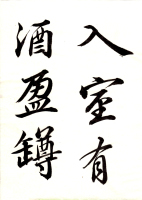 入室有
酒盈罇